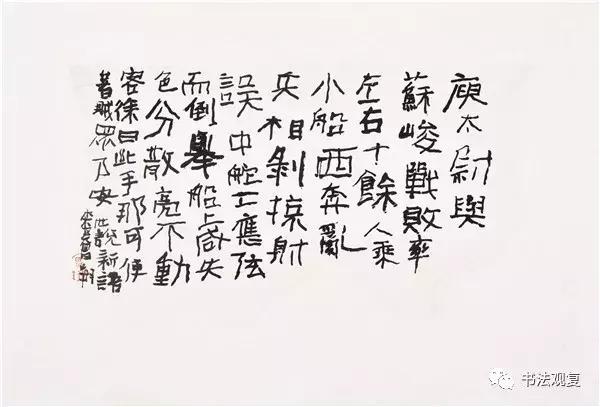 庾太尉與
蘇峻戰敗率
左右十餘人乘
小船西奔亂
兵相剝掠射
誤中舵工應弦
而倒舉船上咸失
色分散亮不動
容徐曰此手那可使
著賊眾乃安 世說新語
书法观复